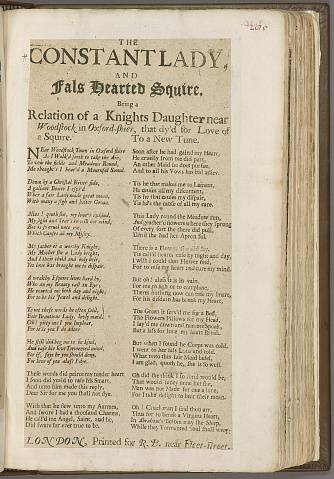 THE
CONSTANT LADY
AND
Fals Hearted Squire.
Being a
Relation of a Knights Daughter near
Woodstock in Oxford-shier, that dy'd for Love of
a Squire. To a New Tune.
NEar Woodstock Town in Oxford-shire
As I walk'd forth to take the Air,
To view the fields and Meadows Round,
Me thought I hear'd a Mournful Sound.
Down by a Christal River side,
A gallant Bower I espi'd
Wher a fair Lady made great moan,
With many a sigh and bitter Groan.
Alas! quoth she, my love's unkind,
My sighs and Tears he will not mind,
But is so cruel unto me,
Which causes all my Misery.
My Father is a worthy Knight,
My Mother is a Lady bright,
And I their child and only heir,
Yet love has brought me to despair.
A wealthy Squire lives hard by,
Who on my Beauty cast an Eye;
He courted me both day and night,
For to be his Jewel and delight.
To me these words he often said,
Fair Beautious Lady, be
Oh! pitty me I you Implear,
For it is you I do adore
He still did beg me to be kind,
And ease his love Tormented mind,
For if, says he you should deny,
For love of you alass I dye.
These words did peirce my tender heart
I soon did yeild to ease his Smart,
And unto him made this reply,
Dear Sir for me you shall not dye.
With that he flew unto my Armes,
And swore I had a thousand Charms,
He call'd me Angel, Saint, and he,
Did sware for ever true to be.
Soon after he had gain'd my Heart,
He cruelly from me did part,
An other Maid he does pursue,
And to all his Vows has bid adieu.
Tis he that makes me to Lament,
He causes all my discontent,
Tis he that causes my dispair,
Tis he's the cause of all my care.
This Lady round the Meadow run,
And gather'd flowers where they sprung
Of every sort she there did pull,
Untill she had her Apron full.
There is a Flower she did say,
Is call'd hearts ease by night and day,
I wish I could that Flower find,
For to ease my heart and cure my mind.
But oh! alass it is in vain,
For me to sigh or to complaine,
Theres nothing now can ease my smart,
For his disdain has broak my Heart,
The Green it serv'd me for a Bed,
The Flowers Pillows for my Head,
I lay'd me down and nare Spoak,
But alass for love my heart Broak.
But when I found her Corps was cold,
I went to her fals Love and told,
What unto this fair Maid befel,
I am glad, quoth he, she is so well.
Oh did she think I so fond would be,
That would fancy none but she,
Man was not Made for one a lone,
For I take delight to hear their mone.
Oh! Cruel man I find thou art,
Thus for to break a Virgins Heart,
In Abraham's Bosom may she Sleep,
While thy Tormented Soul shall weep
LONDON, Printed for R. B. near Fleet-street.